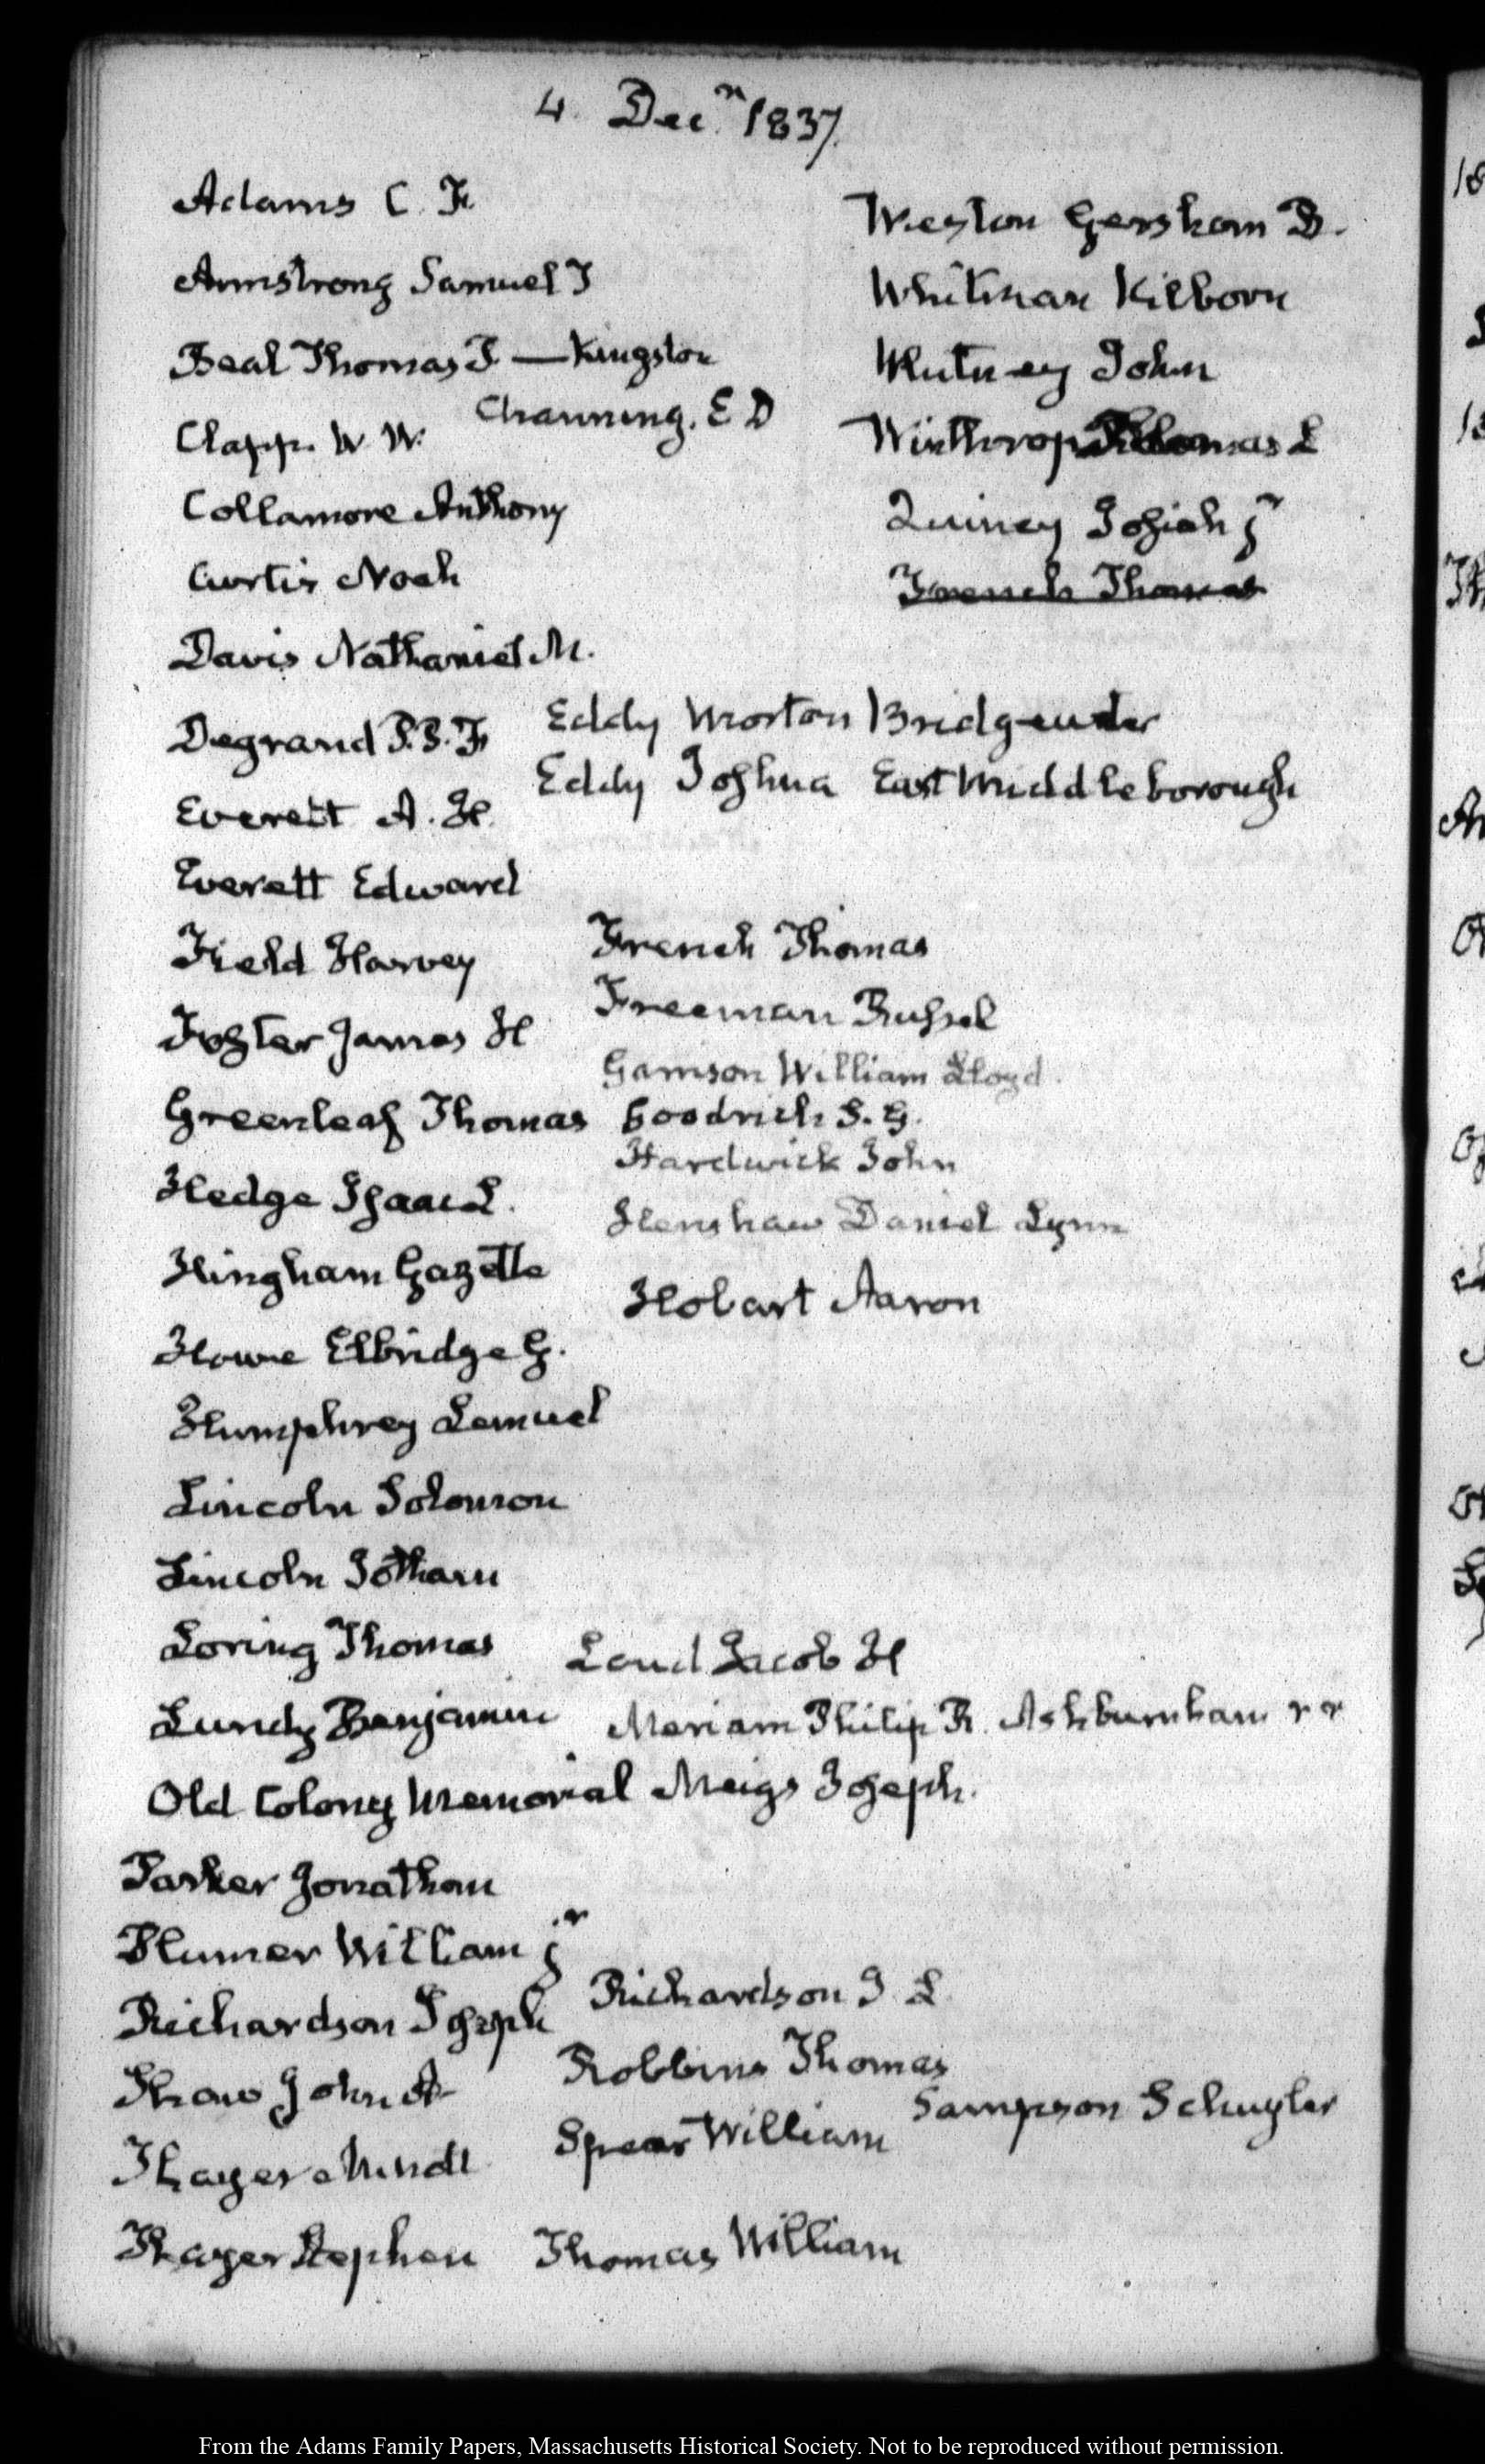 4. Decr. 1837.
Adams C. F.
Armstrong Samuel T
Beal Thomas P. — Kingston
Channing. E D
Clapp. W. W.
Collamore Anthony
Curtis Noah
Davis Nathaniel M.
Degrand P. P. F.
Everett A. H.
Everett Edward
Field Harvey
Foster James H
Greenleaf Thomas
Hedge Isaac L.
Hingham Gazette
Howe Elbridge G.
Humphrey Lemuel
Lincoln Solomon
Lincoln Jotham
Loring Thomas
Lundy Benjamin
Old Colony Memorial
Parker Jonathan
Plumer William jr
Richardson Joseph
Shaw John A
Thayer Minott
Thayer Stephen
Weston Gershom B.
Whitman Kilborn
Whitney John
Winthrop Thomas L
Quincy Josiah jr
French Thomas
Eddy Morton Bridgewater
Eddy Joshua East Middleborough
French Thomas
Freeman Russel
Garrison William Lloyd.
Goodrich S. G.
Hardwick John
Henshaw Daniel Lynn
Hobart Aaron
Loud Jacob H
Meriam Philip R. Ashburnham
Meigs Joseph.
Richardson J. L
Robbins Thomas
Sampson Schuyler
Spear William
Thomas William
From the Adams Family Papers, Massachusetts Historical Society. Not to be reproduced without permission.